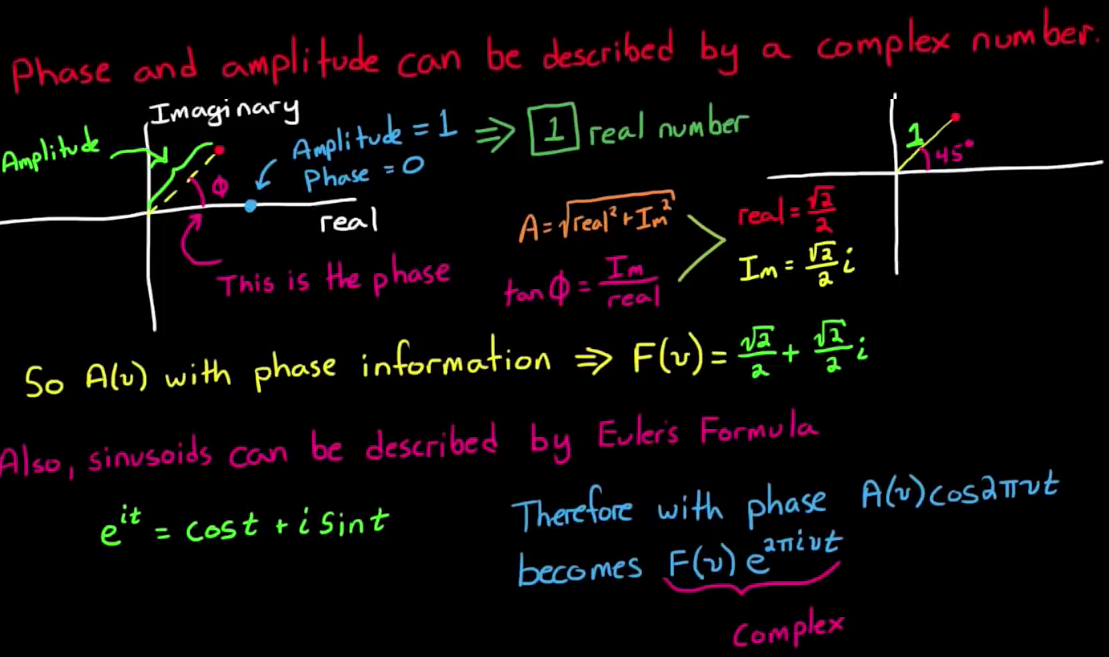 Phase and amplitude can be described by a complex number.
Imaginary
Amplitude
Amplitude = 1
Phase = 0
⇒ 1 real number
1
45°
φ
real
This is the phase
A = √real² + Im²
tan φ = Im/real
real = √2/2
Im = √2/2 i
So A(ν) with phase information ⇒ F(ν) = √2/2 + √2/2 i
Also, sinusoids can be described by Euler's Formula
e^it = cost + i sint
Therefore with phase A(ν)cos2πνt
becomes F(ν) e^2πiνt
Complex